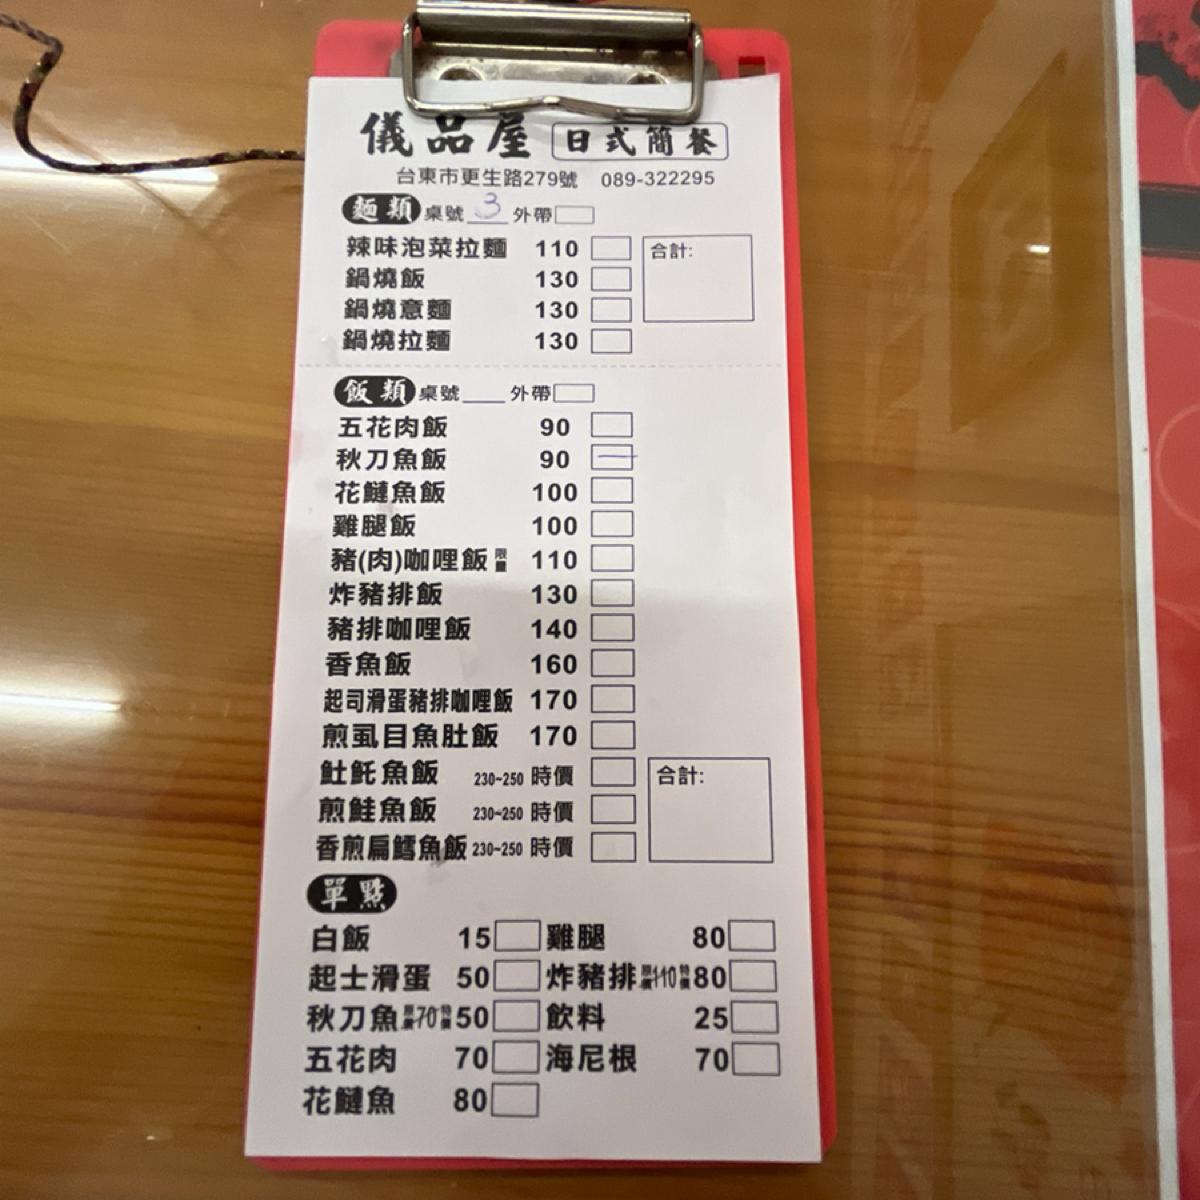 儀品屋 日式簡餐
台東市更生路279號 089-322295
麵類 桌號 3 外帶
辣味泡菜拉麵 110 合計:
鍋燒飯 130
鍋燒意麵 130
鍋燒拉麵 130
飯類 桌號 外帶
五花肉飯 90
秋刀魚飯 90 一
花鰱魚飯 100
雞腿飯 100
豬(肉)咖哩飯 限量 110
炸豬排飯 130
豬排咖哩飯 140
香魚飯 160
起司滑蛋豬排咖哩飯 170
煎虱目魚肚飯 170
魠魚飯 230~250 時價 合計:
煎鮭魚飯 230~250 時價
香煎扁鱈魚飯 230~250 時價
單點
白飯 15 雞腿 80
起士滑蛋 50 炸豬排 原價110 特價 80
秋刀魚 原價70 特價 50 飲料 25
五花肉 70 海尼根 70
花鰱魚 80